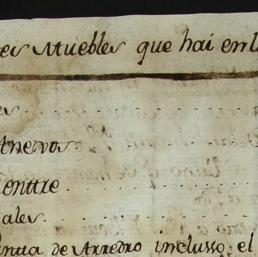 es Muebles que hai en l
es
Anexos
entre
ales
de Arredro inclusso el